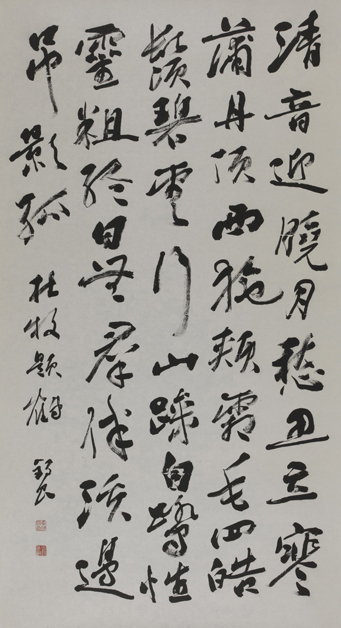 清音迎曉月愁思立寒
蒲丹頂西施頰霜毛四皓
鬚碧雲行止躁白鷺性
靈粗終日無羣伴溪邊
吊影孤
杜牧題鶴